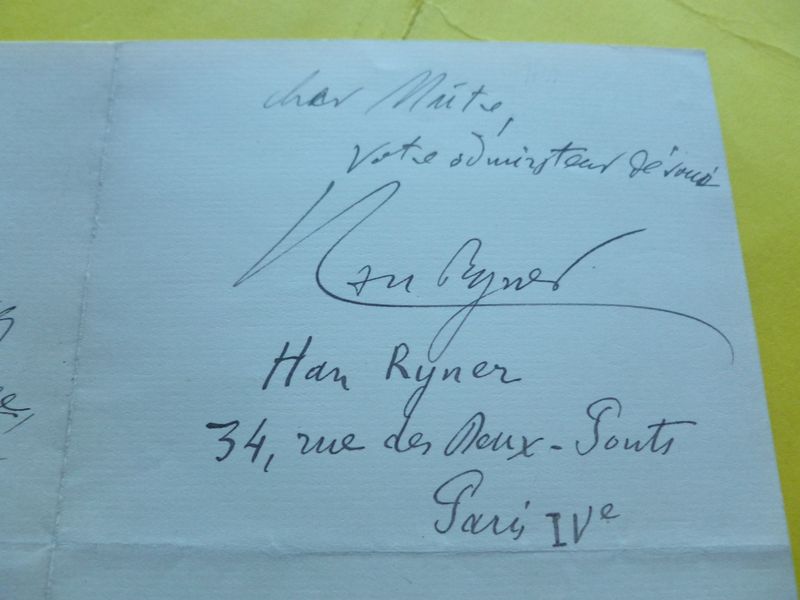 cher Maître,
votre admirateur dévoué
Han Ryner
Han Ryner
34, rue des Deux-Ponts
Paris IVe